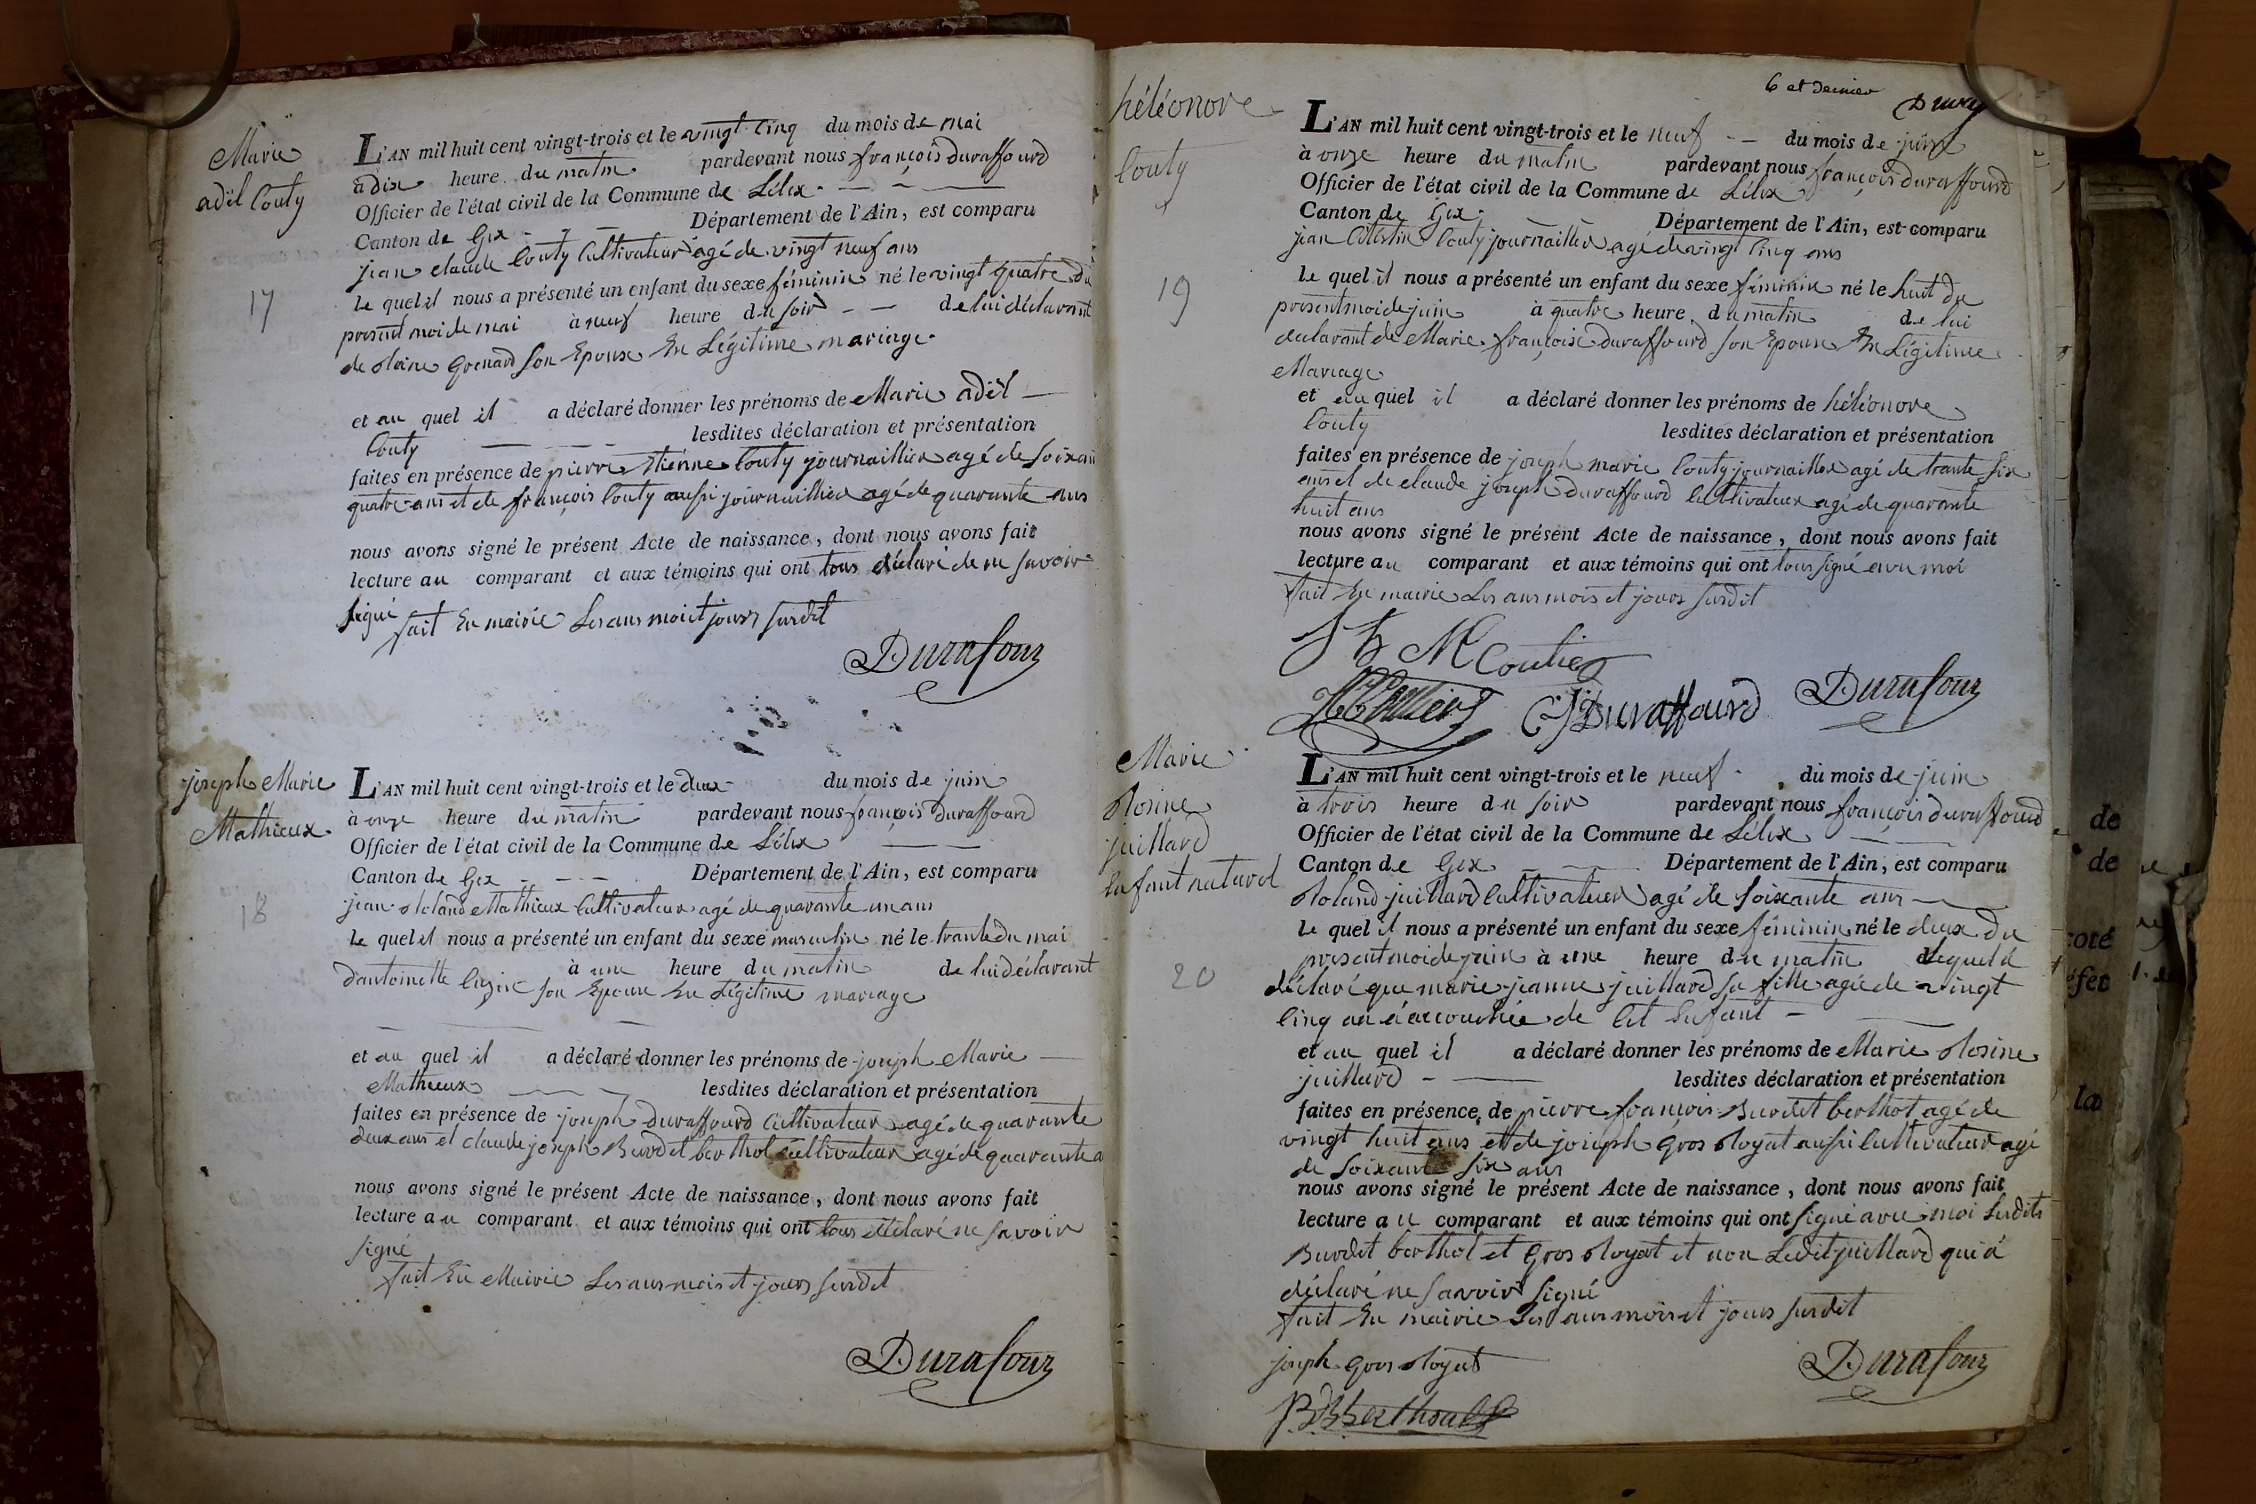 Marie
adèl Couty
17
L'AN mil huit cent vingt-trois et le vingt cinq du mois de mai
à dix heure du matin pardevant nous françois duraffourd
Officier de l'état civil de la Commune de Lélex
Canton de Gex Département de l'Ain, est comparu
jean claude Couty Cultivateur agé de vingt neuf ans
le quel il nous a présenté un enfant du sexe féminin né le vingt quatre du
present moi de mai à neuf heure du soir de lui déclarant
de Rosine Grenard son Epouse En Légitime mariage
et au quel il a déclaré donner les prénoms de Marie adèl
Couty lesdites déclaration et présentation
faites en présence de pierre Etienne Couty journaillier agé de soixante
quatre ans et de françois Couty aussi journaillier agé de quarante ans
nous avons signé le présent Acte de naissance, dont nous avons fait
lecture au comparant et aux témoins qui ont tous déclaré de ne savoir
signé
fait En mairie Les ans moi et jours surdit
Durafour
joseph Marie
Mathieux
18
L'AN mil huit cent vingt-trois et le deux du mois de juin
à onze heure du matin pardevant nous françois Duraffourd
Officier de l'état civil de la Commune de Lélex
Canton de Gex Département de l'Ain, est comparu
jean Roland Mathieux Cultivateur agé de quarante un ans
le quel il nous a présenté un enfant du sexe masculin né le trante du mai
à une heure du matin de lui déclarant
d'antoinette son Epouse En Légitime mariage
et au quel il a déclaré donner les prénoms de joseph Marie
Mathieux lesdites déclaration et présentation
faites en présence de joseph Duraffourd Cultivateur agé de quarante
deux ans et claude joseph Burdet berthol Cultivateur agé de quarante
nous avons signé le présent Acte de naissance, dont nous avons fait
lecture au comparant et aux témoins qui ont tous déclaré ne savoir
signé
fait En Mairie Les ans mois et jours surdit
Durafour
6 et dernier
héléonore
Couty
19
L'AN mil huit cent vingt-trois et le neuf du mois de juin
à onze heure du matin pardevant nous françois duraffourd
Officier de l'état civil de la Commune de Lélex
Canton de Gex Département de l'Ain, est comparu
jean Célestin Couty journaillier agé de vingt cinq ans
le quel il nous a présenté un enfant du sexe féminin né le huit du
present moi de juin à quatre heure du matin de lui
declarant de Marie françoise duraffourd son Epouse En Légitime
Mariage
et au quel il a déclaré donner les prénoms de héléonore
Couty lesdites déclaration et présentation
faites en présence de joseph marie Couty journaillier agé de trante six
ans et de claude joseph duraffourd Cultivateur agé de quarante
huit ans
nous avons signé le présent Acte de naissance, dont nous avons fait
lecture au comparant et aux témoins qui ont tous signé avec moi
fait En mairie Les ans mois et jours surdit
J h M Coutier
CJ Duraffourd Durafour
Marie
Rosine
juillard
Enfant naturel
20
L'AN mil huit cent vingt-trois et le neuf du mois de juin
à trois heure du soir pardevant nous françois duraffourd
Officier de l'état civil de la Commune de Lélex
Canton de Gex Département de l'Ain, est comparu
Roland juillard Cultivateur agé de soixante ans
le quel il nous a présenté un enfant du sexe féminin né le deux du
present moi de juin à une heure du matin lequel à
déclaré que marie jeanne juillard sa fille agée de vingt
cinq an à accouchée de Cet Enfant
et au quel il a déclaré donner les prénoms de Marie Rosine
juillard lesdites déclaration et présentation
faites en présence de pierre françois Burdet berthol agé de
vingt huit ans et de joseph Gros Royat aussi Cultivateur agé
de soixante six ans
nous avons signé le présent Acte de naissance, dont nous avons fait
lecture au comparant et aux témoins qui ont signé avec moi surdits
Burdet berthol et Gros Royat et non Ledit juillard qui à
déclaré ne savoir signé
fait En mairie Les ans mois et jours surdit
joseph Gros Royat
Durafour
de
de
coté
la